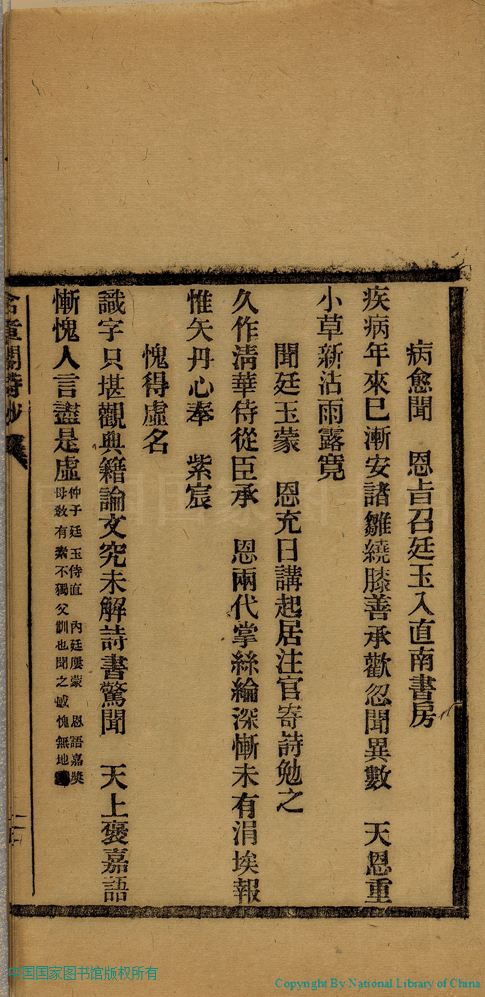 病愈聞　恩旨召廷玉入直南書房
疾病年來已漸安諸雛繞膝善承歡忽聞異數　天恩重
小草新沾雨露寬
聞廷玉蒙　恩充日講起居注官寄詩勉之
久作清華侍從臣承　恩兩代掌絲綸深慚未有涓埃報
惟矢丹心奉　紫宸
愧得虛名
識字只堪觀典籍論文究未解詩書驚聞　天上褒嘉語
慚愧人言盡是虛
仲子廷玉侍直　內廷屢蒙　恩語嘉獎
母教有素不獨父訓也聞之感愧無地
含章閣詩鈔
中国国家图书馆版权所有
Copyright By National Library of China